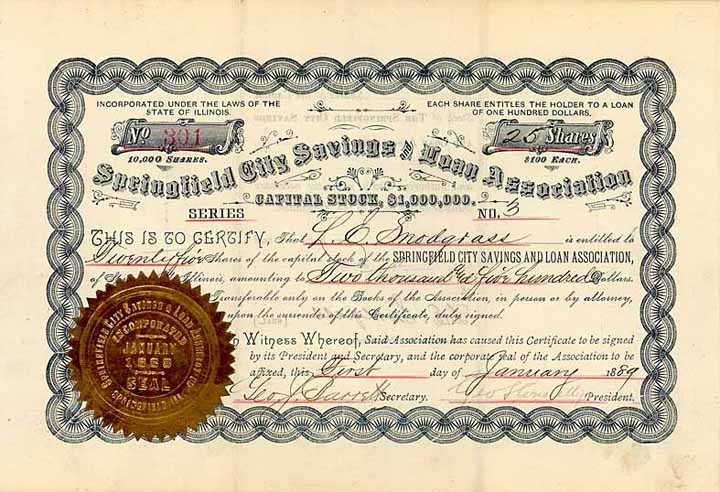 INCORPORATED UNDER THE LAWS OF THE
STATE OF ILLINOIS.
EACH SHARE ENTITLES THE HOLDER TO A LOAN
OF ONE HUNDRED DOLLARS.
No 391
25 Shares
10,000 SHARES.
$100 EACH.
Springfield City Savings and Loan Association
CAPITAL STOCK, $1,000,000.
SERIES NO. 3
THIS IS TO CERTIFY, That L. C. Snodgrass is entitled to
Twenty five Shares of the capital stock of the SPRINGFIELD CITY SAVINGS AND LOAN ASSOCIATION,
of Illinois, amounting to Two thousand five hundred Dollars.
Transferable only on the Books of the Association, in person or by attorney,
upon the surrender of this Certificate, duly signed.
Witness Whereof, Said Association has caused this Certificate to be signed
by its President and Secretary, and the corporate seal of the Association to be
affixed, this First day of January 1889
Geo. J. Secretary. Geo President.
SPRINGFIELD CITY SAVINGS & LOAN ASSOCIATION
INCORPORATED
JANUARY
1888
SEAL
SPRINGFIELD ILL.